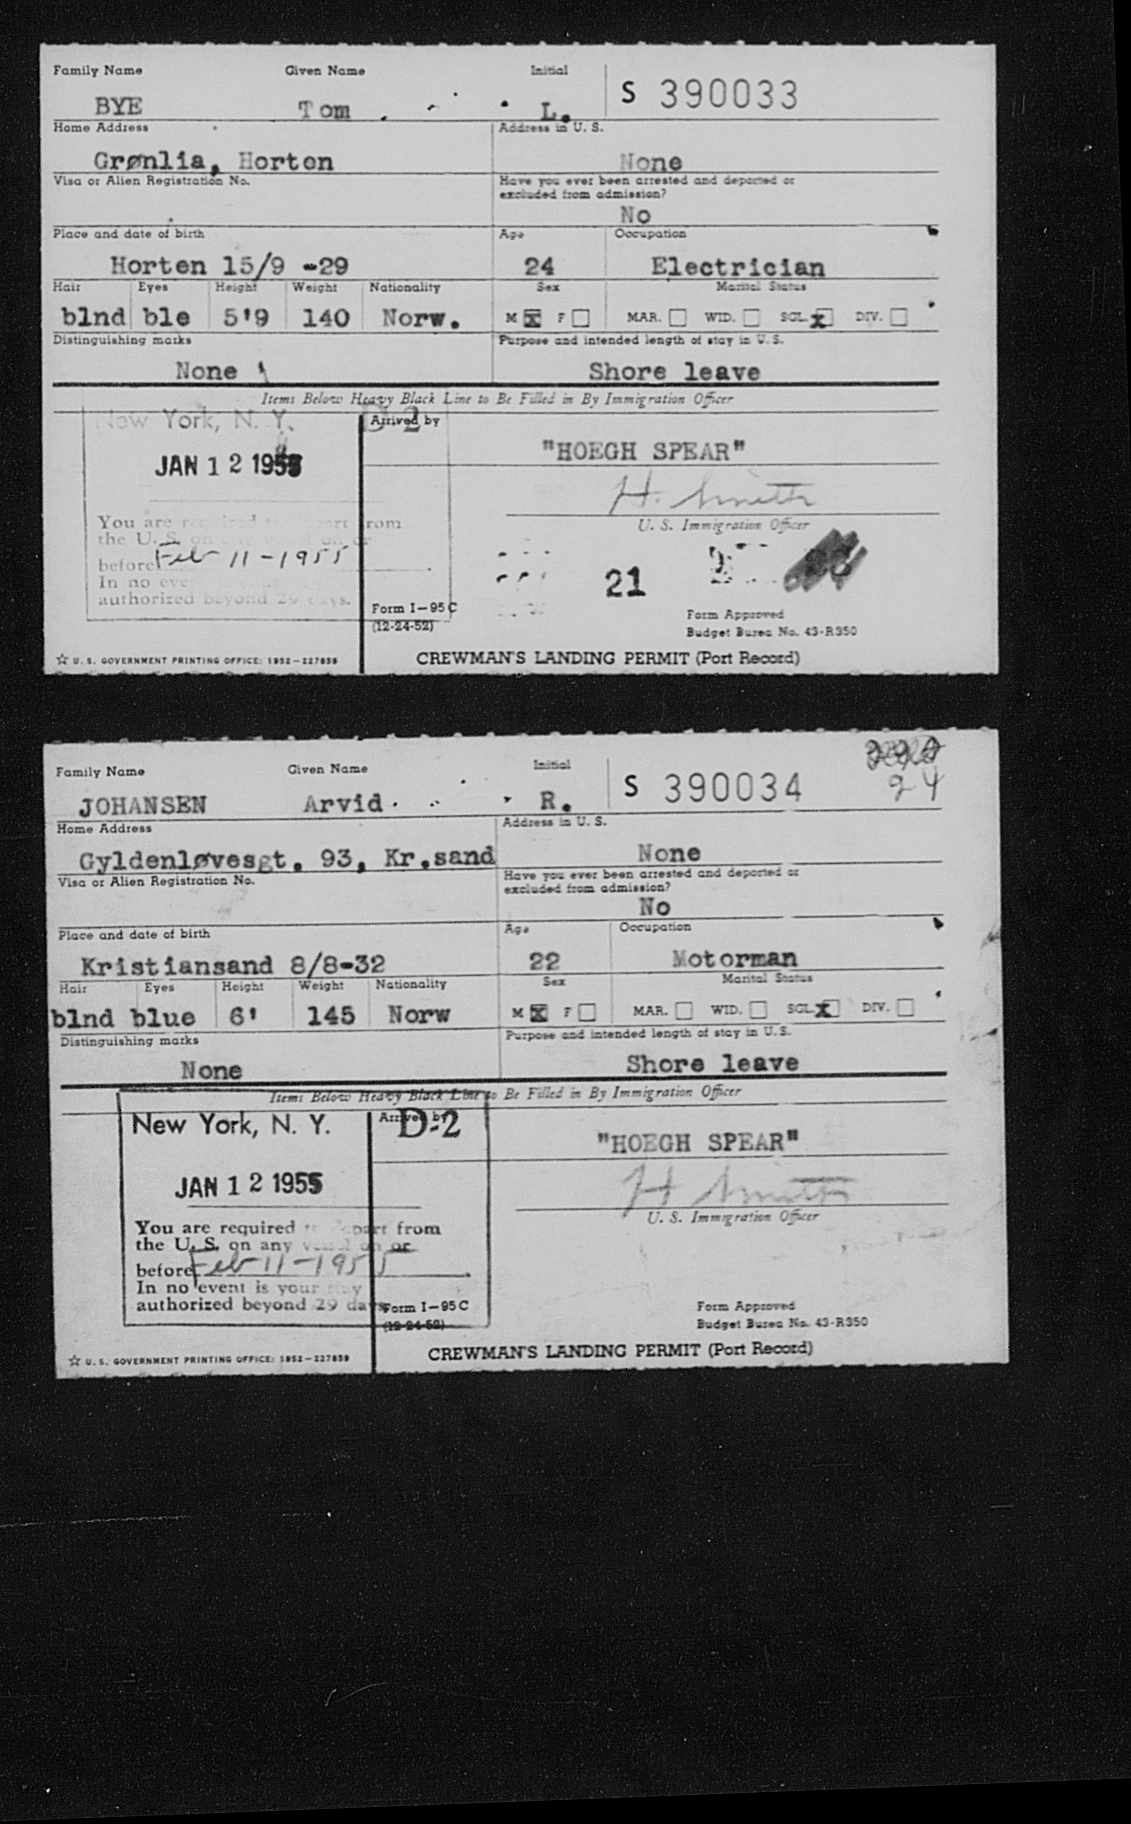 Family Name Given Name Initial
BYE Tom L. S 390033
Home Address Address in U. S.
Grønlia, Horten None
Visa or Alien Registration No. Have you ever been arrested and deported or
excluded from admission?
No
Place and date of birth Age Occupation
Horten 15/9 -29 24 Electrician
Hair Eyes Height Weight Nationality Sex Marital Status
blnd ble 5'9 140 Norw. M X F MAR. WID. SGL. X DIV.
Distinguishing marks Purpose and intended length of stay in U. S.
None Shore leave
Items Below Heavy Black Line to Be Filled in By Immigration Officer
New York, N. Y. D-2 Arrived by
"HOEGH SPEAR"
JAN 12 1955
H. Smith
You are required from U. S. Immigration Officer
the U. S. on
before Feb 11-1955
In no eve 21
authorized beyond 29 days. Form I-95C Form Approved
(12-24-52) Budget Bureau No. 43-R350
☆ U. S. GOVERNMENT PRINTING OFFICE: 1952-227859 CREWMAN'S LANDING PERMIT (Port Record)
Family Name Given Name Initial
JOHANSEN Arvid R. S 390034 24
Home Address Address in U. S.
Gyldenløvesgt. 93, Kr.sand None
Visa or Alien Registration No. Have you ever been arrested and deported or
excluded from admission?
No
Place and date of birth Age Occupation
Kristiansand 8/8-32 22 Motorman
Hair Eyes Height Weight Nationality Sex Marital Status
blnd blue 6' 145 Norw M X F MAR. WID. SGL. X DIV.
Distinguishing marks Purpose and intended length of stay in U. S.
None Shore leave
Items Below Heavy Black Line to Be Filled in By Immigration Officer
New York, N. Y. Arrived by D-2
"HOEGH SPEAR"
JAN 12 1955
H Smith
You are required to depart from U. S. Immigration Officer
the U. S. on any vessel on or
before Feb 11-1955
In no event is your stay
authorized beyond 29 days Form I-95C Form Approved
(12-24-52) Budget Bureau No. 43-R350
☆ U. S. GOVERNMENT PRINTING OFFICE: 1952-227859 CREWMAN'S LANDING PERMIT (Port Record)